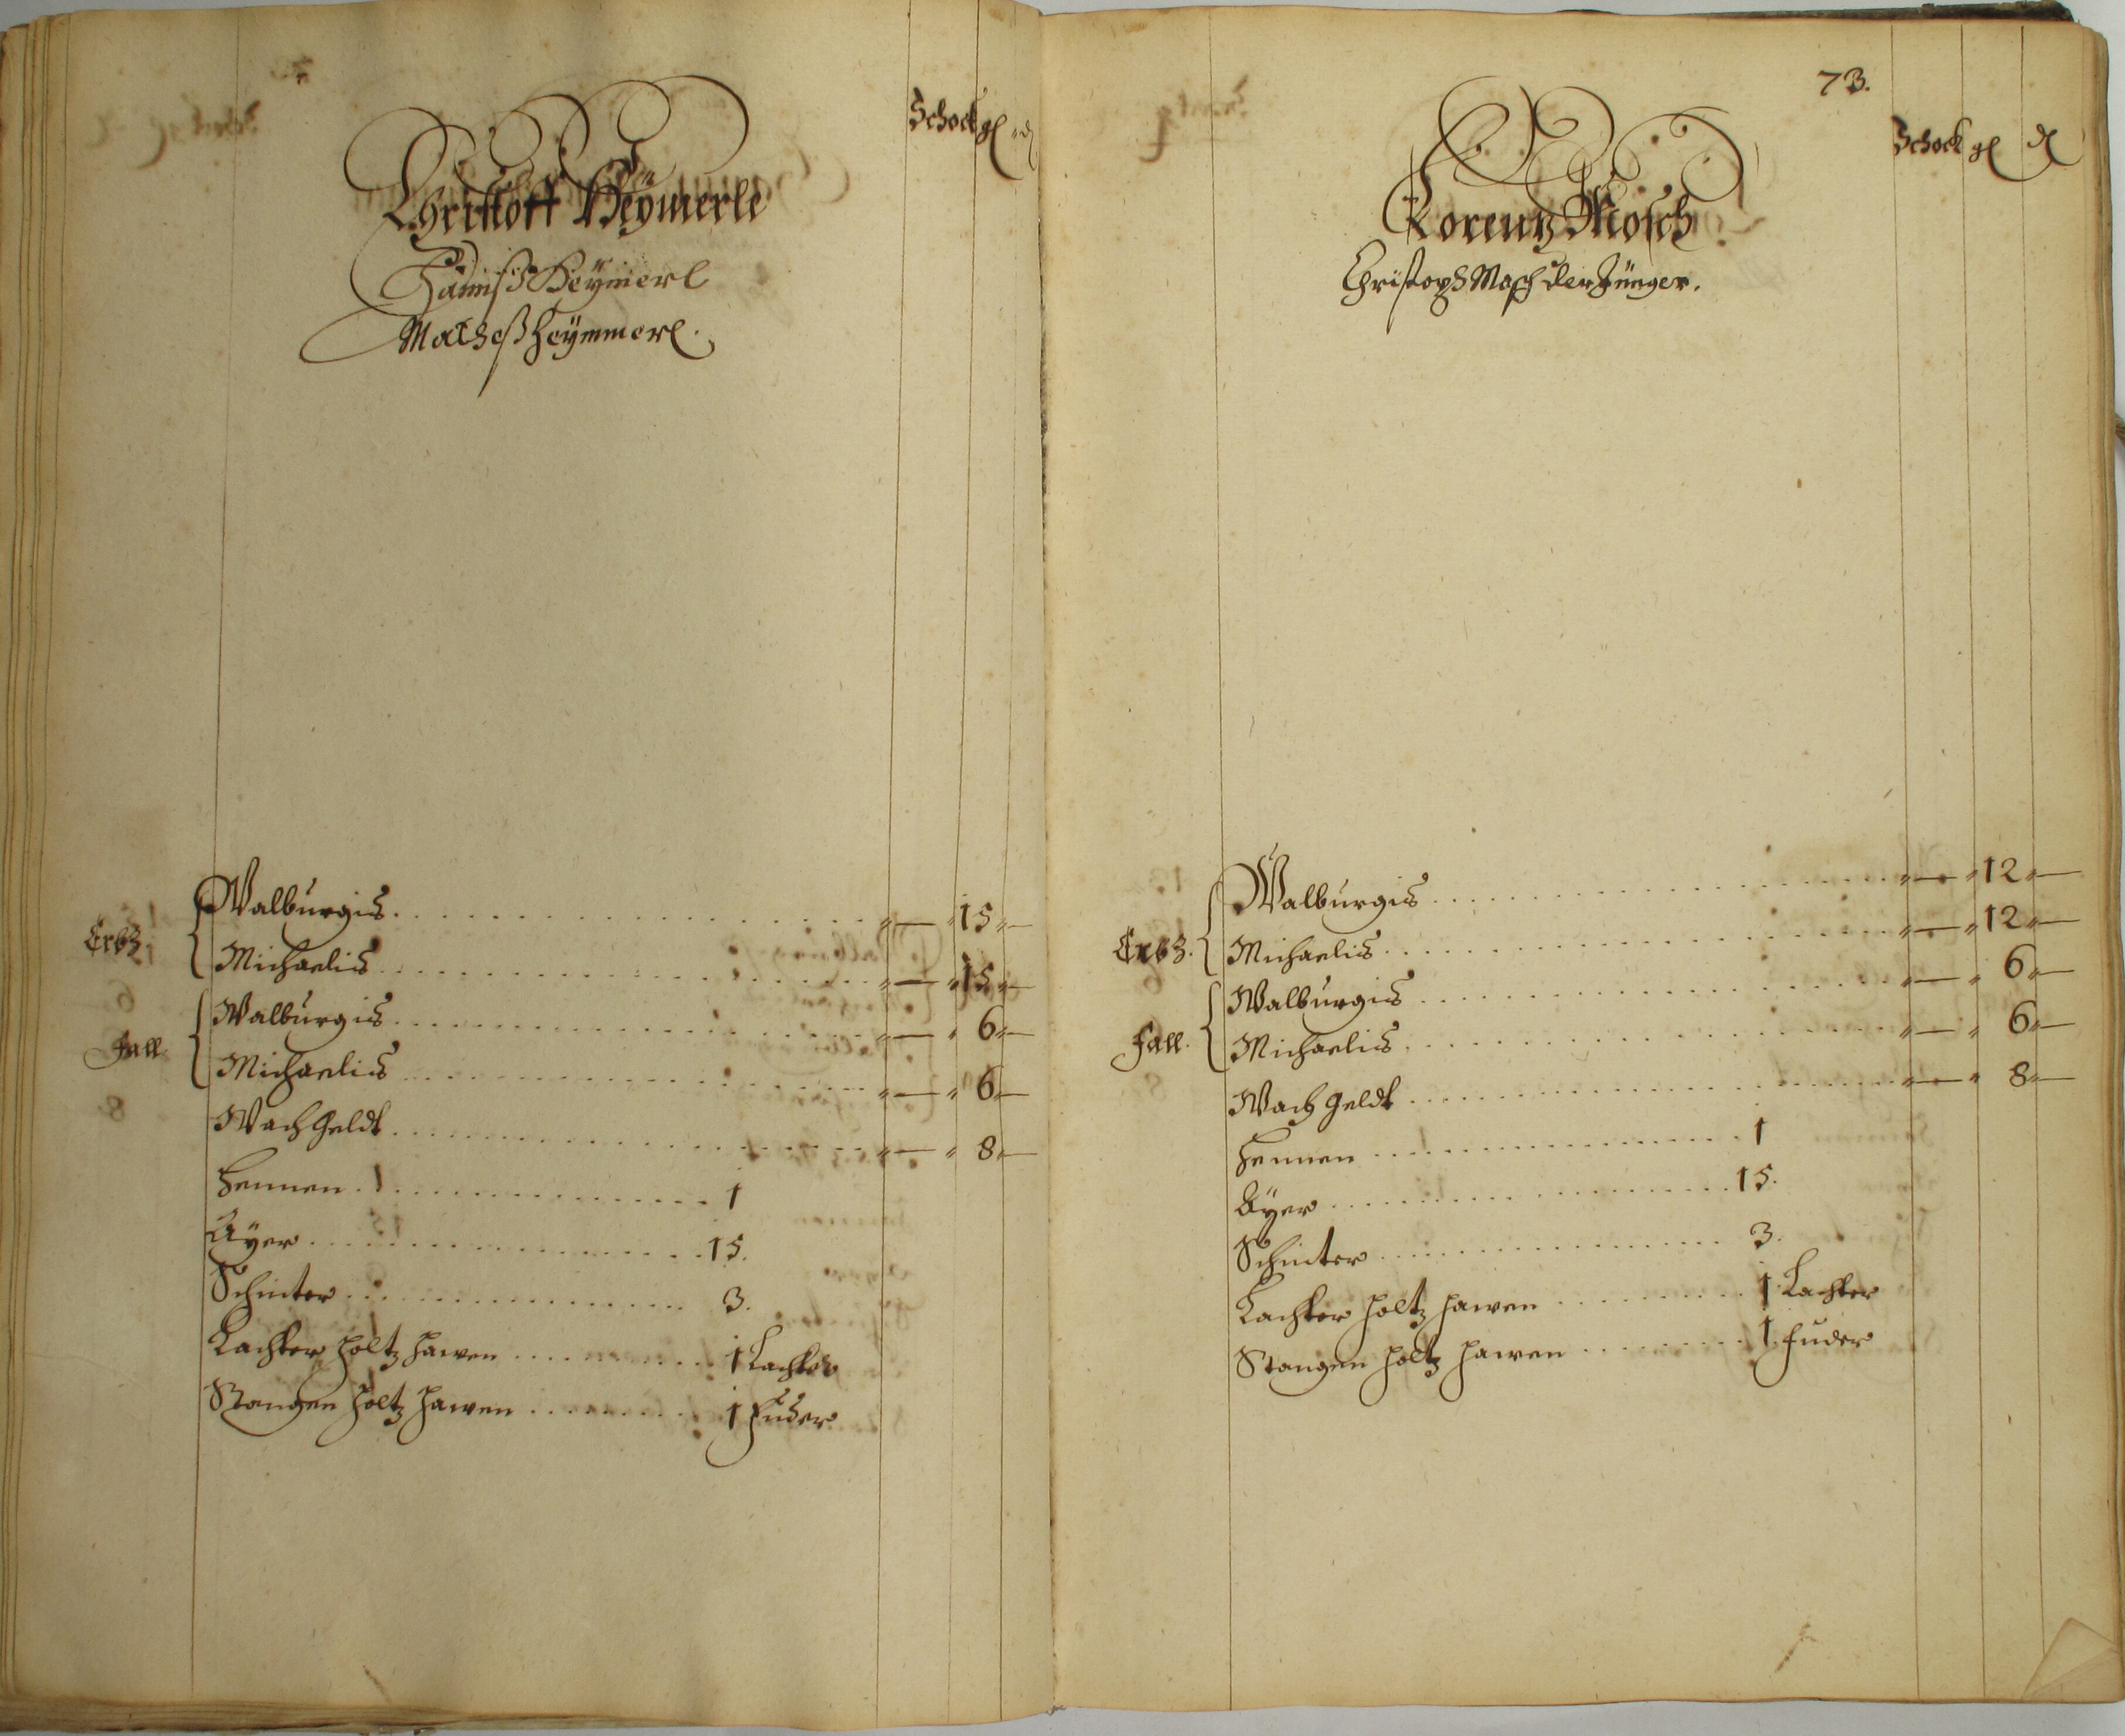 Schock gl d
Christoff Heymerle
Hannß Heymerl
Matheß Heymmerl.
Erbz. Walburgis . . . „ — „ 15 „ —
Michaelis . . . „ — „ 15 „ —
Fall. Walburgis . . . „ — „ 6 „ —
Michaelis . . . „ — „ 6 „ —
Wach Geldt . . . „ — „ 8 „ —
Hennen . . . 1
Ayer . . . 15.
Schnitter . . . 3.
Lachter holtz hawen . . . 1 Lachter
Stangen holtz hawen . . . 1 Fuder
73.
Schock gl d
Lorentz Mosch
Christoph Mosch der Jünger.
Erbz. Walburgis . . . „ — „ 12 „ —
Michaelis . . . „ — „ 12 „ —
Fall. Walburgis . . . „ — „ 6 „ —
Michaelis . . . „ — „ 6 „ —
Wach geldt . . . „ — „ 8 „ —
Hennen . . . 1
Ayer . . . 15.
Schnitter . . . 3.
Lachter holtz hawen . . . 1 Lachter
Stangen holtz hawen . . . 1. Fuder